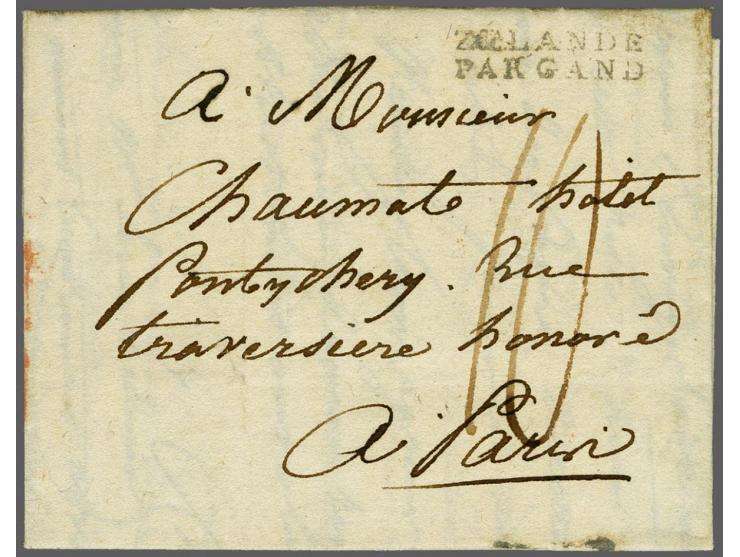 ZELANDE
PAR GAND
A Monsieur
Chaumate hotel
Pontychery. Rue
traversiere honoré
A Paris